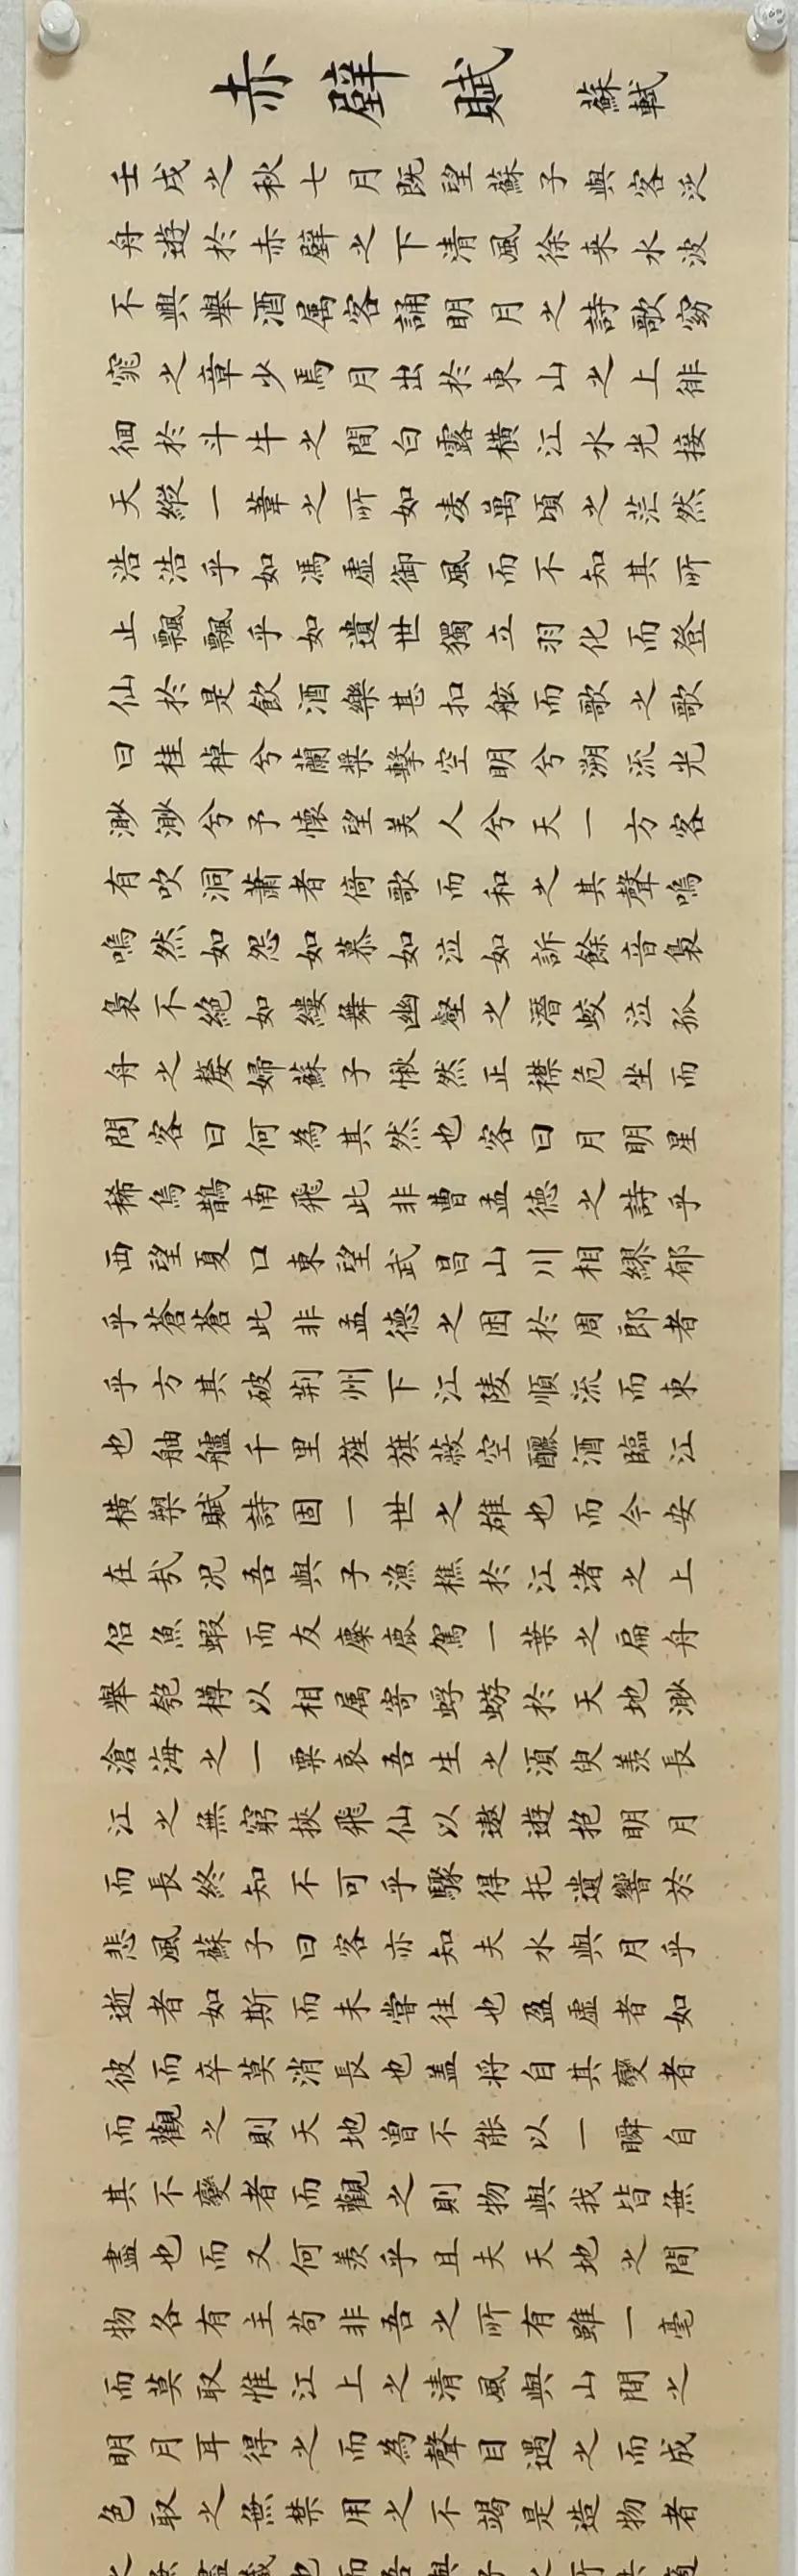 赤壁賦 蘇軾
壬戌之秋七月既望蘇子與客泛
舟遊於赤壁之下清風徐来水波
不興舉酒属客誦明月之詩歌窈
窕之章少焉月出於東山之上徘
徊於斗牛之間白露橫江水光接
天縱一葦之所如凌萬頃之茫然
浩浩乎如馮虛御風而不知其所
止飄飄乎如遺世獨立羽化而登
仙於是飲酒樂甚扣舷而歌之歌
曰桂棹兮蘭槳擊空明兮溯流光
渺渺兮予懷望美人兮天一方客
有吹洞蕭者倚歌而和之其聲嗚
嗚然如怨如慕如泣如訴餘音裊
裊不絕如縷舞幽壑之潛蛟泣孤
舟之嫠婦蘇子愀然正襟危坐而
問客曰何為其然也客曰月明星
稀烏鵲南飛此非曹孟德之詩乎
西望夏口東望武昌山川相繆郁
乎蒼蒼此非孟德之困於周郎者
乎方其破荆州下江陵順流而東
也舳艫千里旌旗蔽空釃酒臨江
橫槊賦詩固一世之雄也而今安
在哉況吾與子漁樵於江渚之上
侣魚蝦而友麋鹿駕一葉之扁舟
舉匏樽以相属寄蜉蝣於天地渺
滄海之一粟哀吾生之須臾羨長
江之無窮挾飛仙以遨遊抱明月
而長終知不可乎驟得托遺響於
悲風蘇子曰客亦知夫水與月乎
逝者如斯而未嘗往也盈虛者如
彼而卒莫消長也盖將自其變者
而觀之則天地曾不能以一瞬自
其不變者而觀之則物與我皆無
盡也而又何羨乎且夫天地之間
物各有主苟非吾之所有雖一毫
而莫取惟江上之清風與山間之
明月耳得之而為聲目遇之而成
色取之無禁用之不竭是造物者